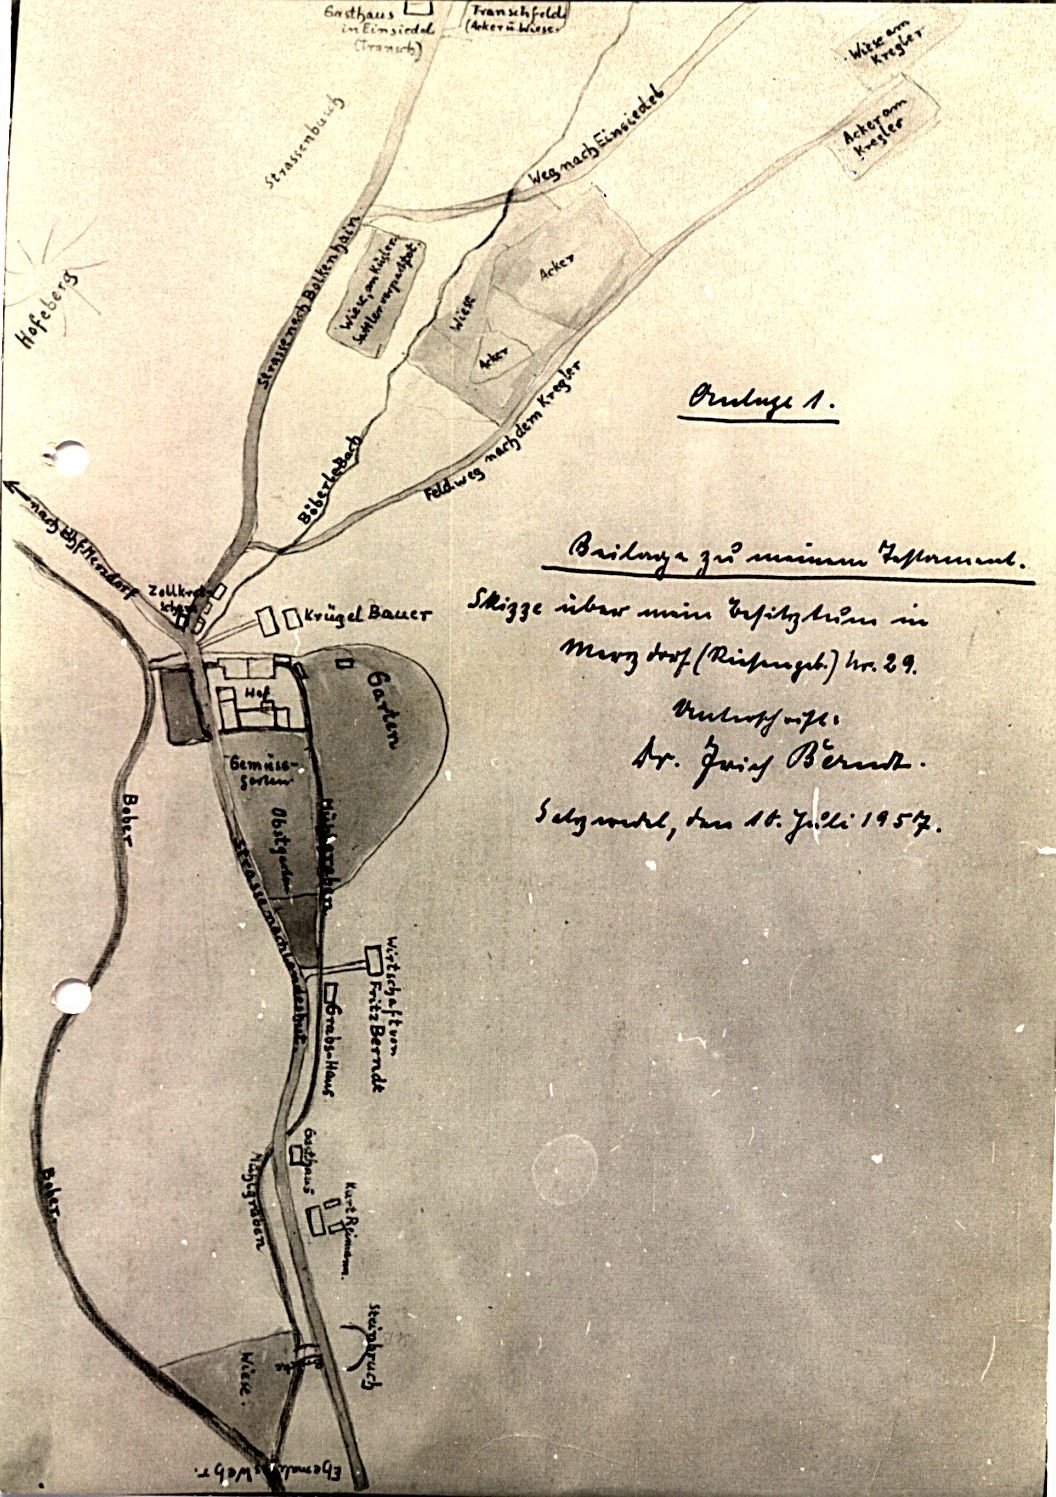 Gasthaus
in Einsiedel
(Transch)
Transchfeld
(Acker u. Wiese.
Wiese am
Kregler
Acker am
Kregler
Strassenbusch
Weg nach Einsiedel
Hofeberg
Strasse nach Bolkenhain
Wiese, an Kügler
Sattler verpachtet.
Wiese
Acker
Acker
Feldweg nach dem Kregler
Böberle Bach
nach Bhf. Merzdorf
Zollkret-
scham
Krügel Bauer
Anlage 1.
Beilage zu meinem Testament.
Skizze über mein Besitztum in
Merzdorf (Riesengeb.) Nr. 29.
Unterschrift:
Dr. Erich Berndt.
Salzwedel, den 10. Juli 1957.
Hof
Garten
Gemüse-
garten
Obstgarten
Mühlgraben
Bober
Strasse nach Landeshut.
Wirtschaft von
Fritz Berndt
Grabs-Haus.
Gasthaus
Mühlgraben
Kurt Reimann.
Bober
Steinbruch
Wiese.
Ehemaliges Wehr.